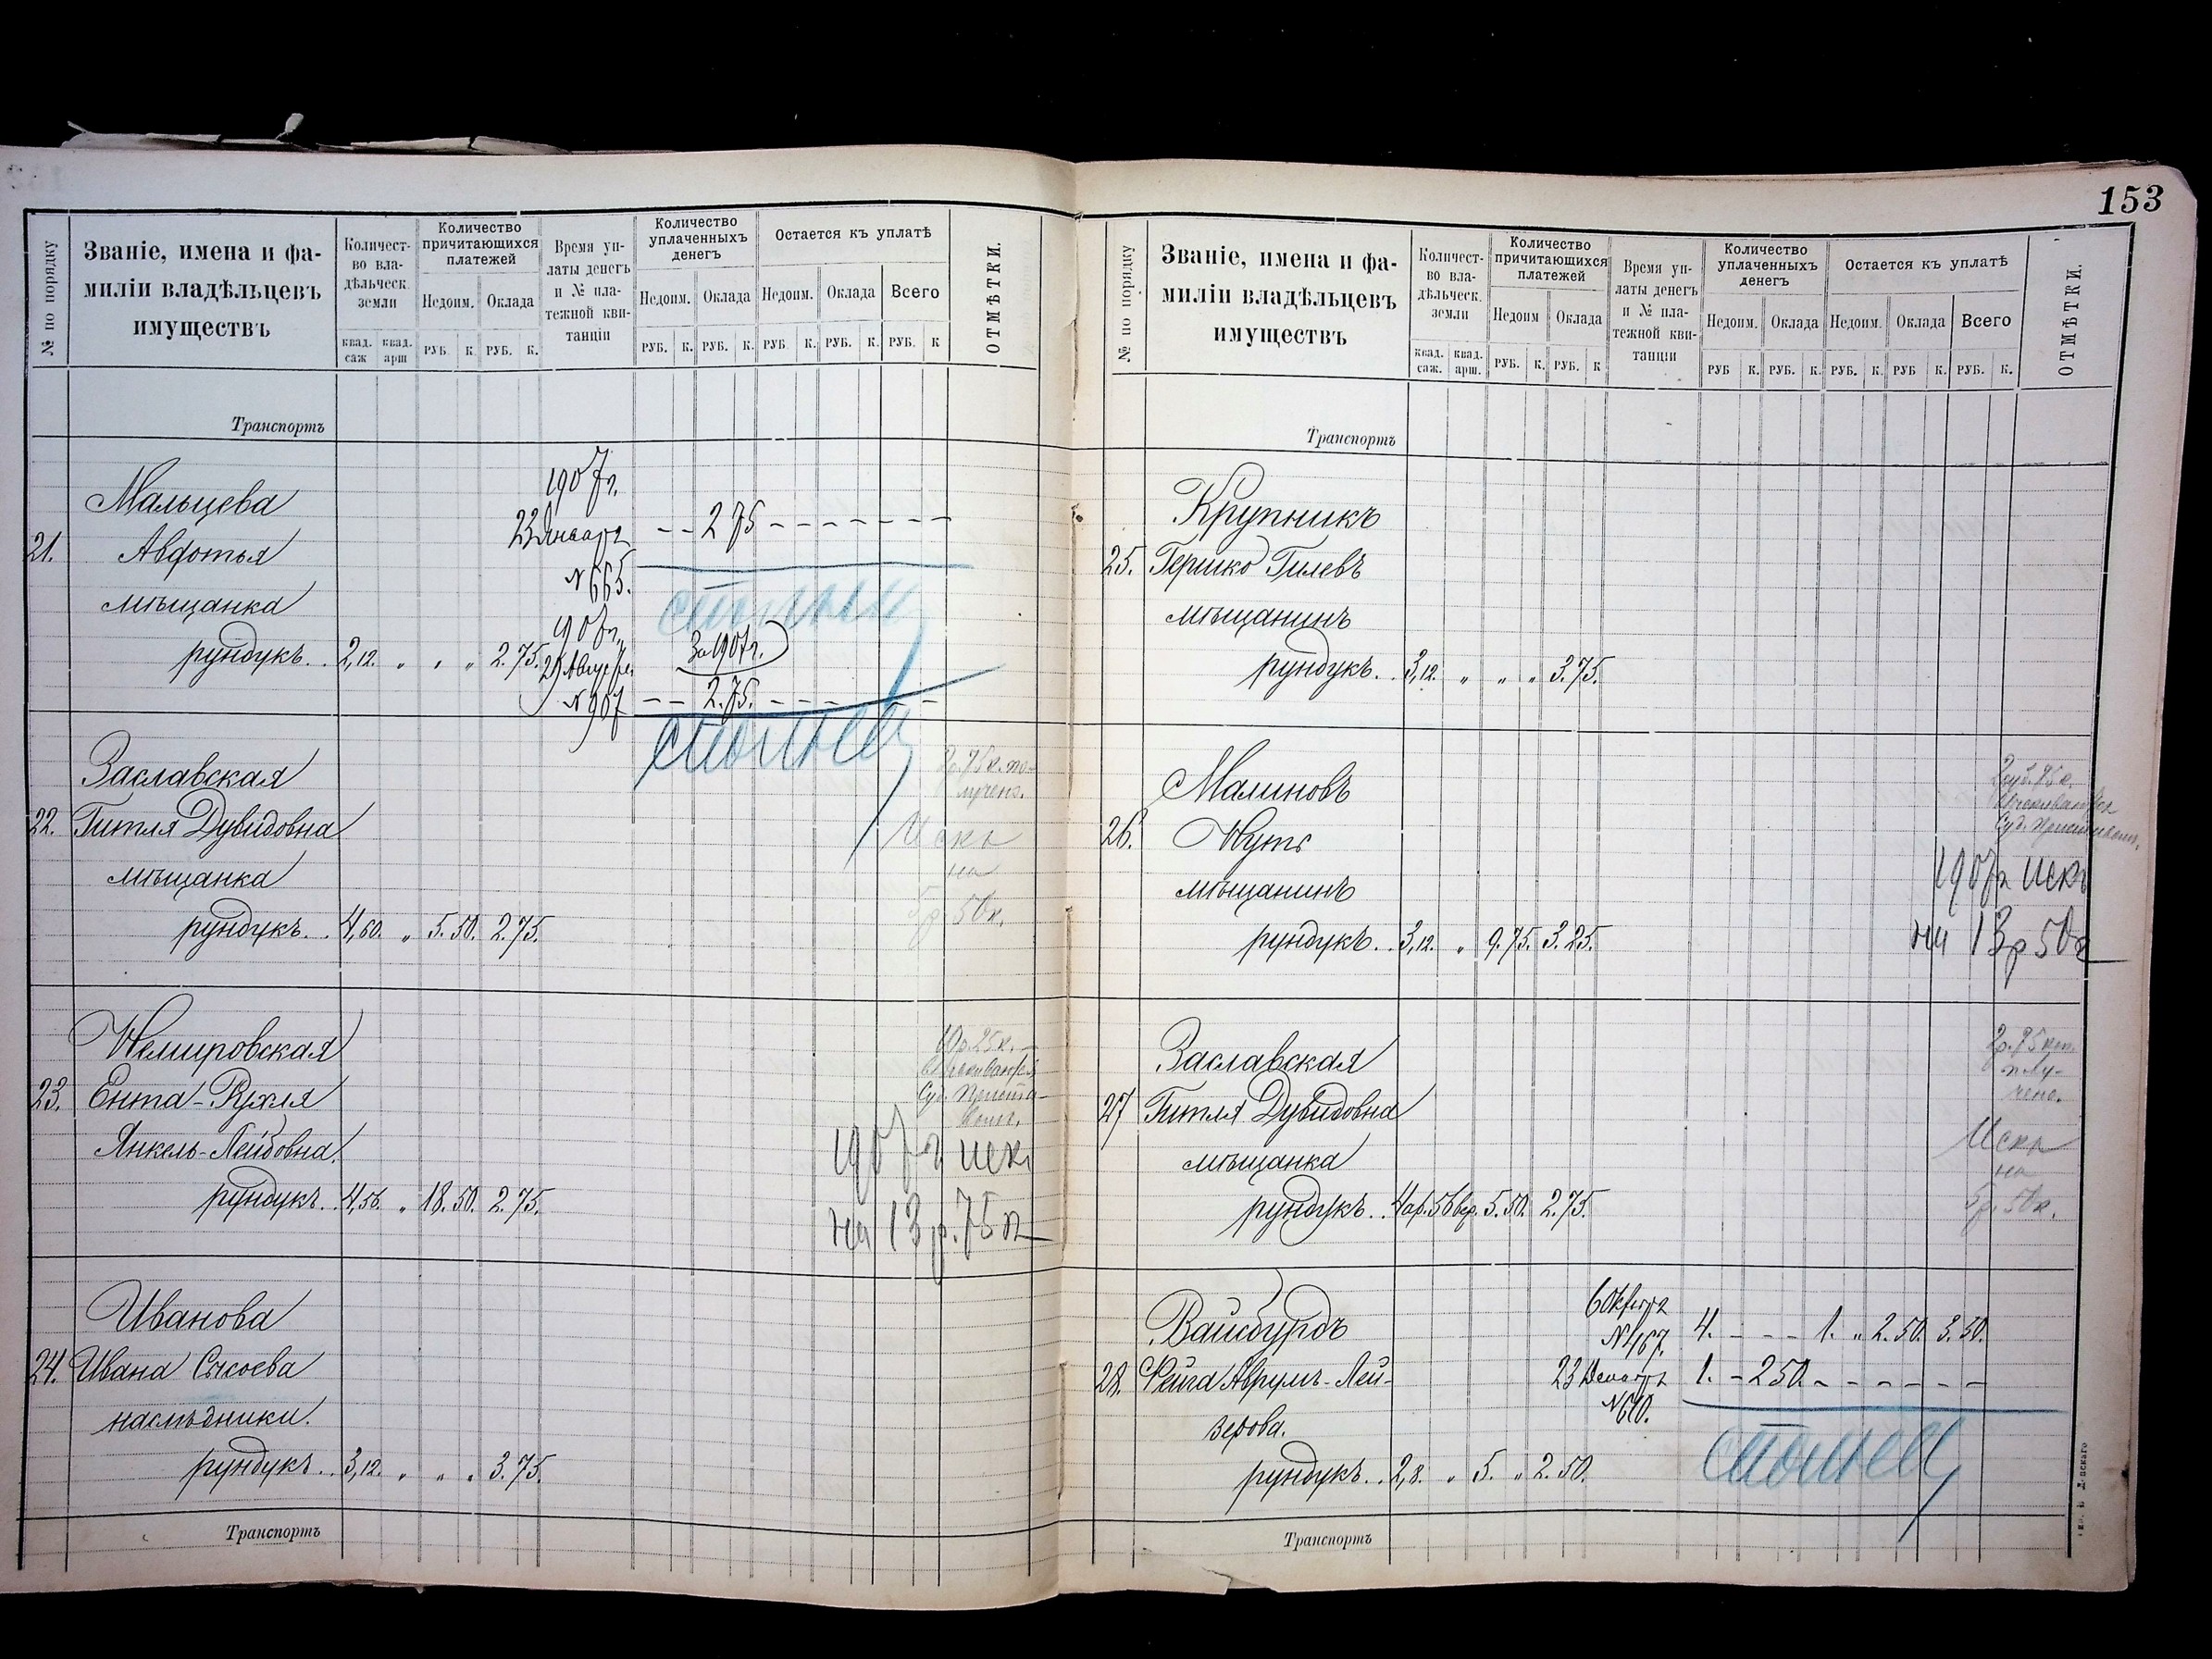 153
№ по порядку
Званіе, имена и фа-
миліи владѣльцевъ
имуществъ
Количест-
во вла-
дѣльческ.
земли
квад. саж
квад. арш
Количество
причитающихся
платежей
Недоим. Оклада
РУБ. К. РУБ. К.
Время уп-
латы денегъ
и № пла-
тежной кви-
танціи
Количество
уплаченныхъ
денегъ
Недоим. Оклада
РУБ. К. РУБ. К.
Остается къ уплатѣ
Недоим. Оклада Всего
РУБ. К. РУБ. К. РУБ. К
ОТМѢТКИ.
Транспортъ
Мальцева
21. Авдотья
мѣщанка
рундукъ. . 2,12. „ „ „ 2.75.
1907 г.
23 Января – – 2 75 – – – – – – –
№ 665.
1907 г.
За 1907 г.
№ 907 – – 2.75. – – – –
Заславская
22. Гитля Дувидовна
мѣщанка
рундукъ. . 4,60. „ 5.50. 2.75.
2р. 75 к. по-
лучено.
Искъ
на
5р 50к.
Немировская
23. Ента-Рухля
Янкель-Лейбовна.
рундукъ. . 4,56. „ 18.50. 2.75.
10 р. 25 к.
Суд. Приста-
вом.
1907 г иск
на 13 р. 75 к
Иванова
24. Ивана Сысоева
наслѣдники.
рундукъ. . 3,12. „ „ „ 3.75.
Транспортъ
№ по порядку
Званіе, имена и фа-
миліи владѣльцевъ
имуществъ
Количест-
во вла-
дѣльческ.
земли
квад. саж.
квад. арш.
Количество
причитающихся
платежей
Недоим Оклада
РУБ. К. РУБ. К
Время уп-
латы денегъ
и № пла-
тежной кви-
танціи
Количество
уплаченныхъ
денегъ
Недоим. Оклада
РУБ К. РУБ. К.
Остается къ уплатѣ
Недоим. Оклада Всего
РУБ. К. РУБ К. РУБ. К.
ОТМѢТКИ.
Транспортъ
Крупникъ
25. Гершко Гилевъ
мѣщанинъ
рундукъ. . 3,12. „ „ „ 3.75.
Малиновъ
26. Нута
мѣщанинъ
рундукъ. . 3,12. „ 9.75. 3.25.
1907 г иск
на 13 р 50 к
Заславская
27 Гитля Дувидовна
мѣщанка
рундукъ. . 4ар.56вер. 5.50. 2.75.
2р. 75 коп.
полу-
чено.
Искъ
на
5р. 50к.
Вайсбурдъ
28. Фейга Аврумъ-Лей-
зерова.
рундукъ. . 2,8. „ 5. „ 2.50.
№ 467. 4. – – – 1. „ 2.50. 3.50.
1. – 2 50. – – – – – –
№ 610.
Транспортъ